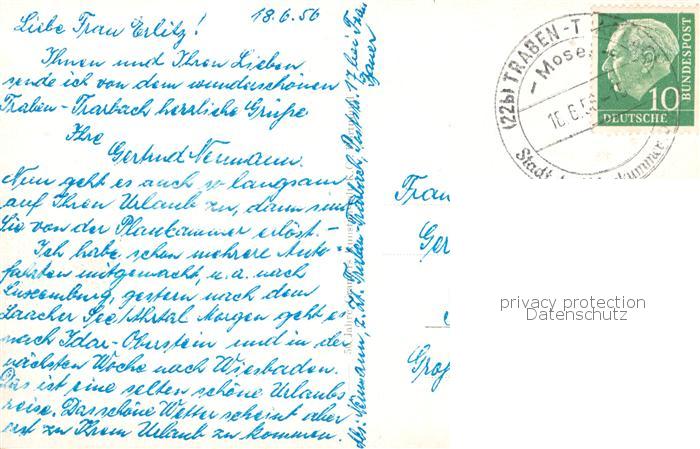 18.6.56
Liebe Frau Erlitz!
Ihnen und Ihren Lieben
sende ich von dem wunderschönen
Traben-Trarbach herrliche Grüße
Ihre
Gertrud Neumann.
Nun geht es auch so langsam
auf Ihren Urlaub zu, dann sind
Sie von der Plankammer erlöst.-
Ich habe schon mehrere Auto-
fahrten mitgemacht, u. a. nach
Luxemburg, gestern nach dem
Laacher See/Ahrtal Morgen geht es
nach Idar-Oberstein und in der
nächsten Woche nach Wiesbaden.
Das ist eine selten schöne Urlaubs
reise. Das schöne Wetter scheint aber
erst zu Ihrem Urlaub zu kommen.
Abs. Neumann, z. Zt. Traben-Trarbach, 17 bei Frau
Frau
Ger
Groß
(22b) TRABEN-T
- Mosel
18.6.5
Stadt
10
DEUTSCHE
BUNDESPOST
privacy protection
Datenschutz